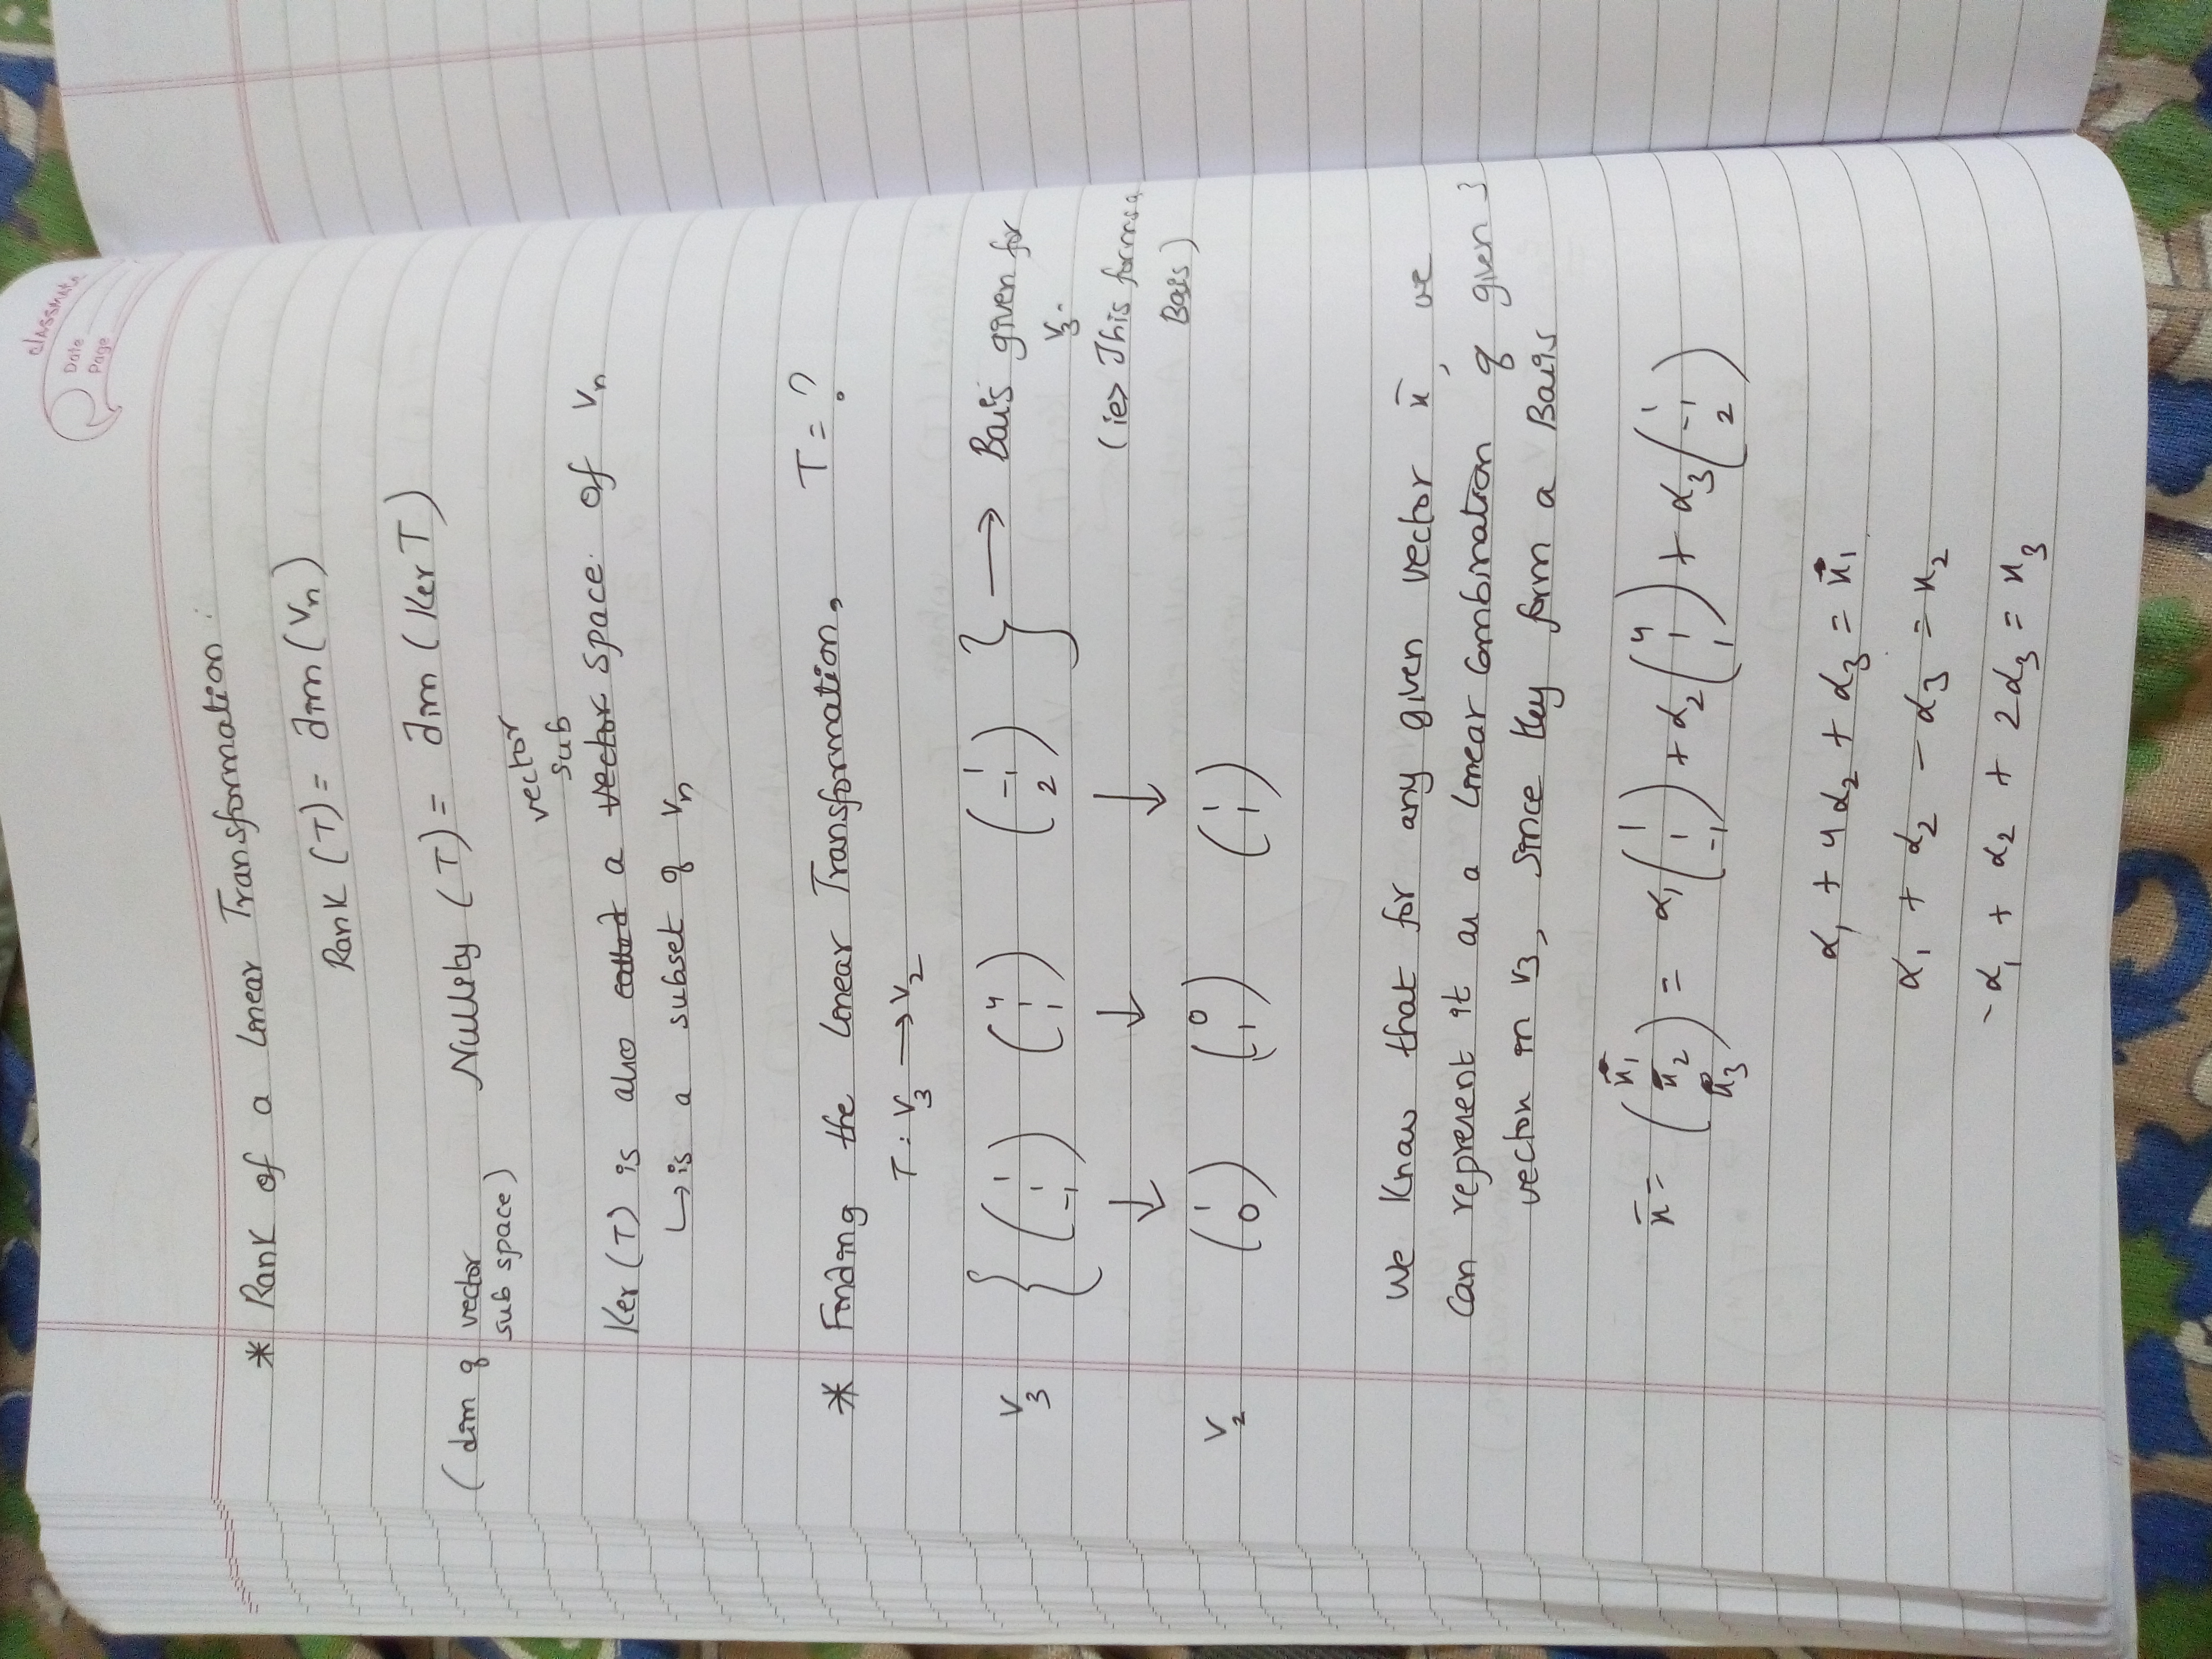 classmate
Date
Page
* Rank of a linear Transformation:
Rank (T) = dim (Vn)
Nullity (T) = dim (Ker T)
(dim of vector
sub space)
vector
sub
Ker (T) is also a vector space of Vn
↳ is a subset of Vn
* Finding the linear Transformation, T = ?
T : V3 → V2
V3 { (1 1 -1) (4 1 1) (1 -1 2) } → Bais given for
V3.
(ie> This forms a
Bais)
↓ ↓ ↓
V2 (1 0) (0 1) (1 1)
We know that for any given vector x̄, we
can represent it as a linear combination of given 3
vector in V3, since they form a Bais
x̄ = (x1 x2 x3) = α1 (1 1 -1) + α2 (4 1 1) + α3 (1 -1 2)
α1 + 4α2 + α3 = x1
α1 + α2 - α3 = x2
-α1 + α2 + 2α3 = x3